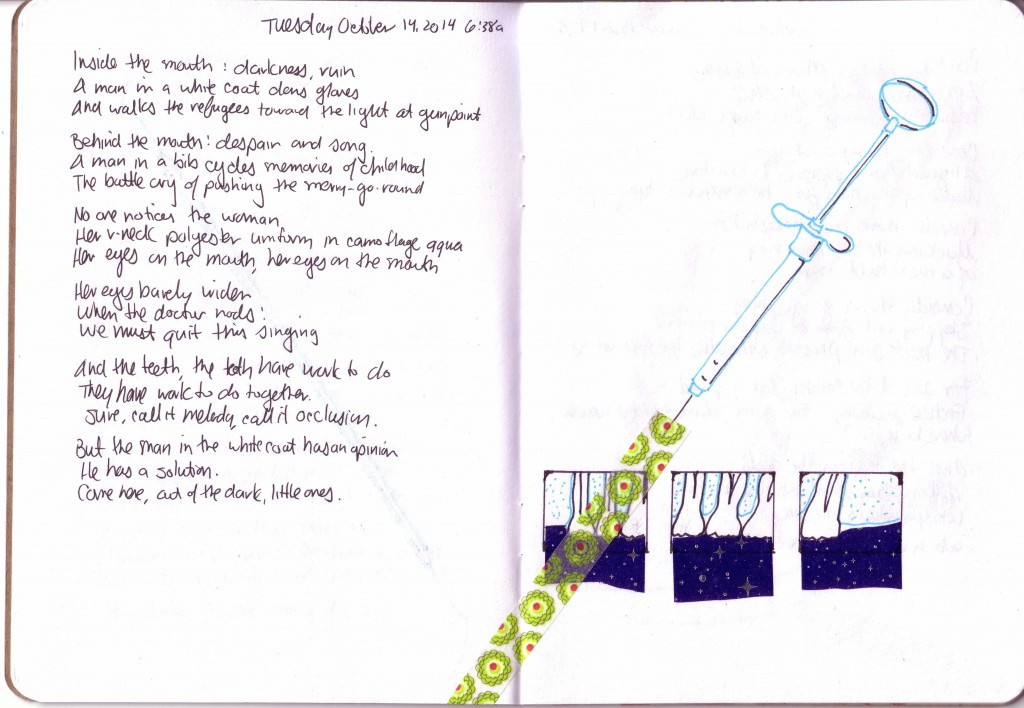 Tuesday October 14, 2014 6:38a
Inside the mouth: darkness, ruin
A man in a white coat dons gloves
And walks the refugees toward the light at gunpoint
Behind the mouth: despair and song.
A man in a bib cycles memories of childhood
The battle cry of pushing the merry-go-round
No one notices the woman
Her v-neck polyester uniform in camoflage aqua
Her eyes on the mouth, her eyes on the mouth
Her eyes barely widen
When the doctor nods:
We must quit this singing
And the teeth, the teeth have work to do
They have work to do together.
Sure, call it melody, call it occlusion.
But the man in the white coat has an opinion
He has a solution.
Come here, out of the dark, little ones.